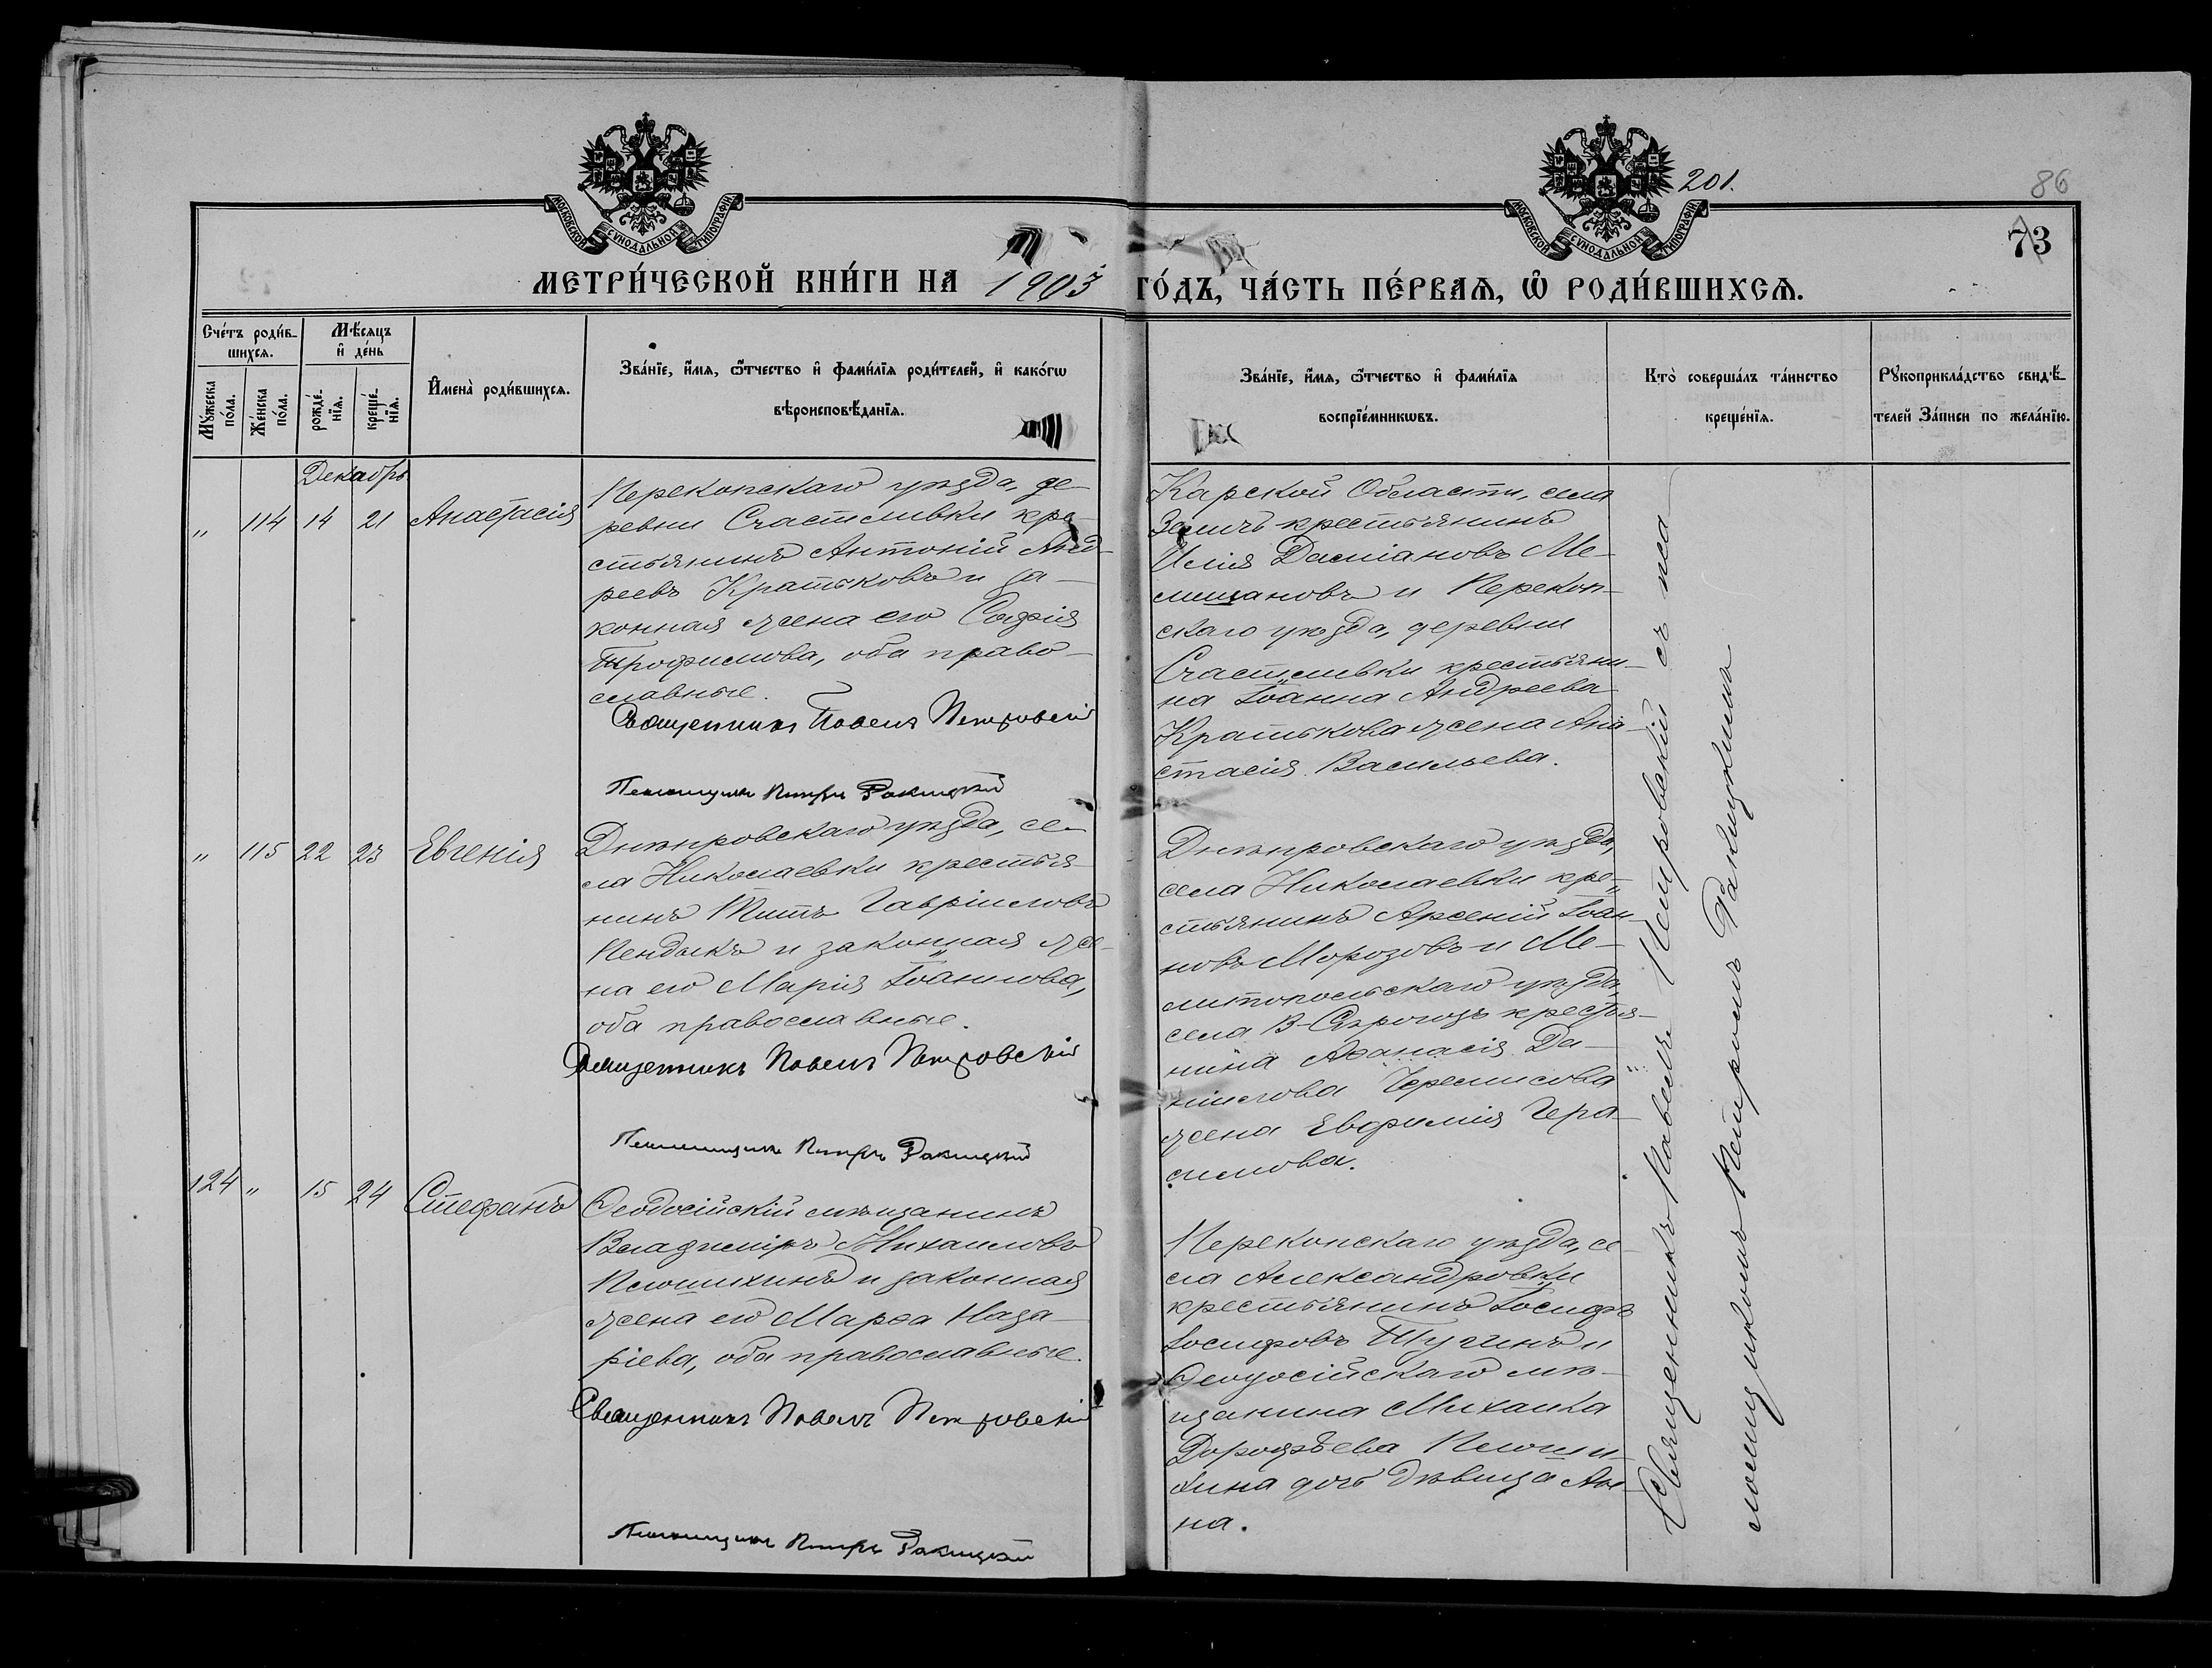 МОСКОВСКОЙ СѴНОДАЛЬНОЙ ТИПОГРАФІИ
МОСКОВСКОЙ СѴНОДАЛЬНОЙ ТИПОГРАФІИ
201.
86
73
МЕТРИ́ЧЕСКОЙ КНИ́ГИ НА 1903 ГО́ДЪ, ЧА́СТЬ ПЕ́РВАѦ, Ѡ҆ РОДИ́ВШИХСѦ.
Сче́тъ роди́в-
шихсѧ.
Мꙋ́жеска
по́ла.
Же́нска
по́ла.
Мѣ́сѧцъ
и҆ де́нь
рожде́-
нїѧ.
креще́-
нїѧ.
И҆мена̀ роди́вшихсѧ.
Зва́нїе, и҆́мѧ, ѻ҆́тчество и҆ фами́лїѧ роди́телей, и҆ како́гѡ
вѣроисповѣ́данїѧ.
Зва́нїе, и҆́мѧ, ѻ҆́тчество и҆ фами́лїѧ
воспрїе́мникѡвъ.
Кто̀ соверша́лъ та́инство
креще́нїѧ.
Рꙋкоприкла́дство свидѣ́-
телей За́писи по жела́нїю.
Декабрь
„ 114 14 21 Анастасія
Перекопскаго уѣзда, де-
ревни Счастливки кре-
стьянинъ Антоній Анд-
реевъ Кратьковъ и за-
конная жена его Софія
Трофимова, оба право-
славные.
Священникъ Павелъ Петровскій
Псаломщикъ Петръ Ракицкій
Карской Области, села
крестьянинъ
Илія Даміановъ Ме-
лищановъ и Перекоп-
скаго уѣзда, деревни
Счастливки крестьяни-
на Іоанна Андреева
Кратькова жена Ана-
стасія Васильева.
„ 115 22 23 Евгенія
Днѣпровскаго уѣзда, се-
ла Николаевки крестья-
нинъ Титъ Гавріиловъ
Пендыкъ и законная же-
на его Марія Іоаннова,
оба православные.
Священникъ Павелъ Петровскій
Псаломщикъ Петръ Ракицкій
Днѣпровскаго уѣзда,
села Николаевки кре-
стьянинъ Арсеній Іоан-
новъ Морозовъ и Ме-
литопольскаго уѣзда,
села В-Сѣрогозъ крестья-
нина Аѳанасія Да-
ніилова Черемисова
жена Евфимія Гера-
симова.
124 „ 15 24 Стефанъ
Ѳеодосійскій мѣщанинъ
Владиміръ Михаиловъ
Плюшкинъ и законная
жена его Марѳа Наза-
ріева, оба православные.
Священникъ Павелъ Петровскій
Псаломщикъ Петръ Ракицкій
Перекопскаго уѣзда, се-
ла Александровки
крестьянинъ Іосифъ
Іосифовъ Тугинъ и
Ѳеодосійскаго мѣ-
щанина Михаила
Дорофѣева Плюши-
хина дочь дѣвица Ан-
на.
Священникъ Павелъ Петровскій съ пса-
ломщикомъ Петромъ Ракицкимъ